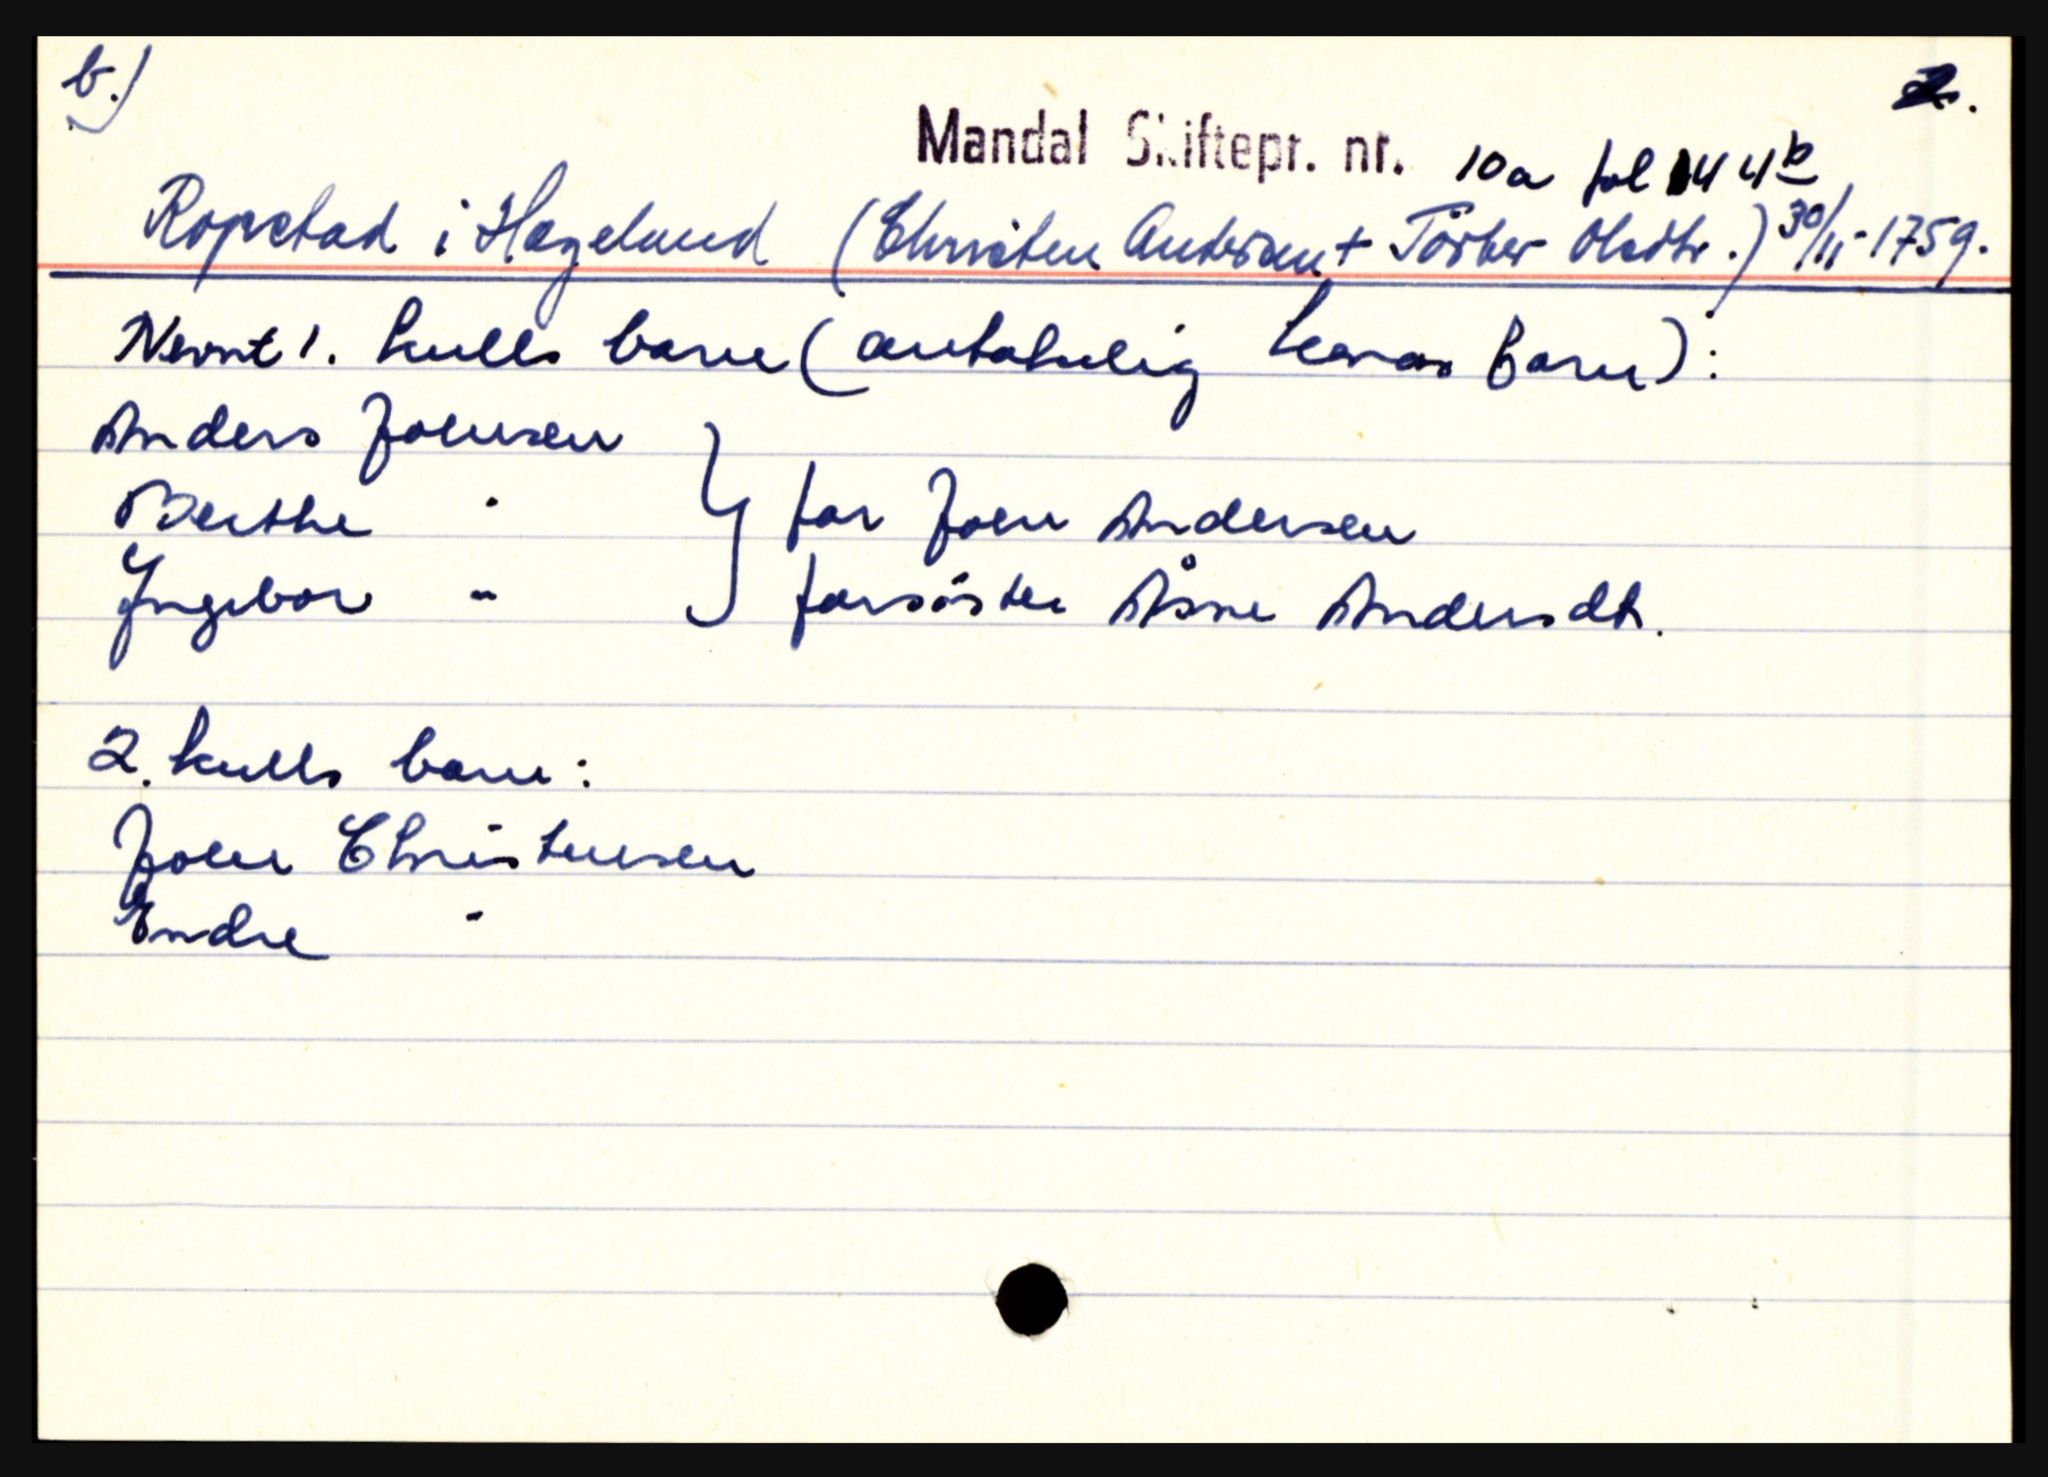 b.)
2.
Mandal Skiftepr. nr. 10a fol 144b
Ropstad i Hægeland (Christen Andersen + Tórber Olsdtr.) 30/11-1759.
Nevnt 1. kulls barn (antakelig hennes barn):
Anders Joensen
Berthe " } far Joen Andersen
Ingebor " farsöster Åsne Andersdtr.
2. kulls barn:
Joen Christensen
Endre "